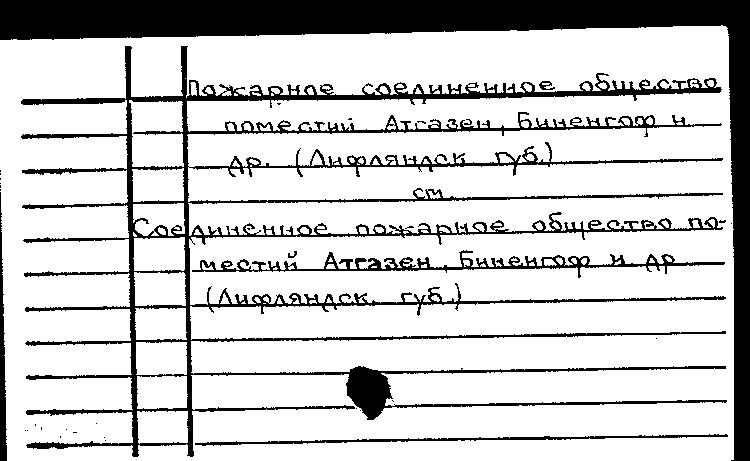 Пожарное соединенное общество
поместий Атгазен, Биненгоф и
др. (Лифляндск губ.)
см.
Соединенное пожарное общество по-
местий Атгазен, Биненгоф и др
(Лифляндск. губ.)